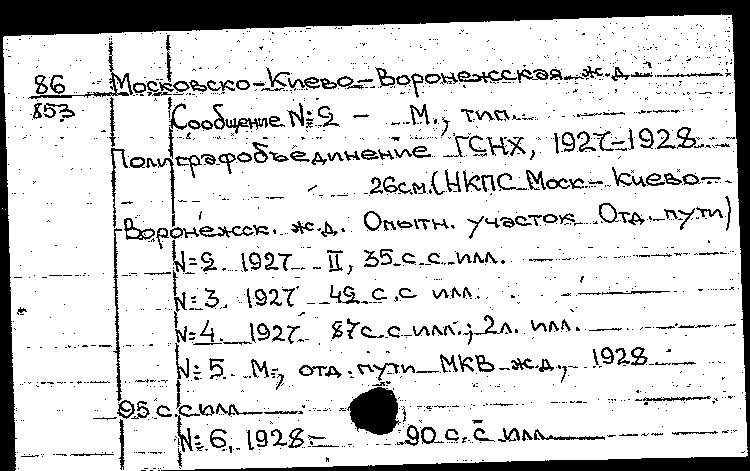 86 Московско-Киево-Воронежская ж.д.
853 Сообщение №2 - М., тип.
Полиграфобъединение ГСНХ, 1927-1928
26см. (НКПС Моск-Киево-
-Воронежск. ж.д. Опытн. участок Отд. пути)
№2. 1927 II, 35 с. с илл.
№3. 1927 42 с. с илл.
№4. 1927 87 с. с илл.; 2л. илл.
№5. М., отд. пути МКВ ж.д., 1928
95 с с илл
№6, 1928.- 90 с. с илл.